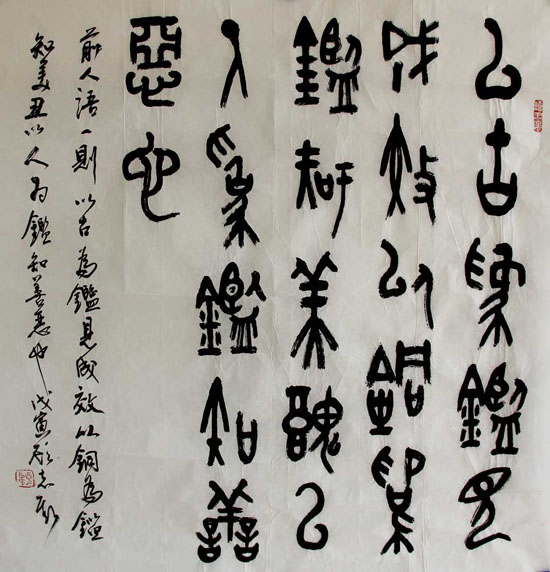 以古為鑑見
成效以銅為
鑑知美醜以
人為鑑知善
惡也
前人語一則以古為鑑見成效以銅為鑑
知美丑以人為鑑知善惡也戊寅